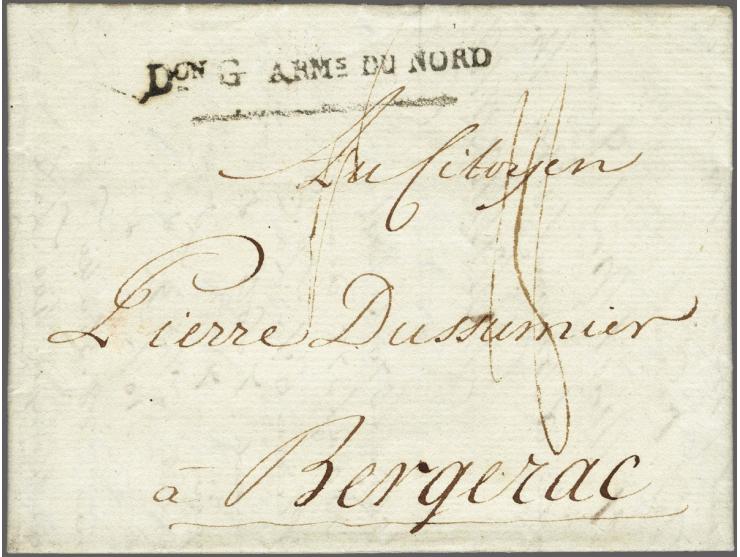 Dᵒⁿ G ARMˢ DU NORD
Au Citoyen
Pierre Dussumier
à Bergerac